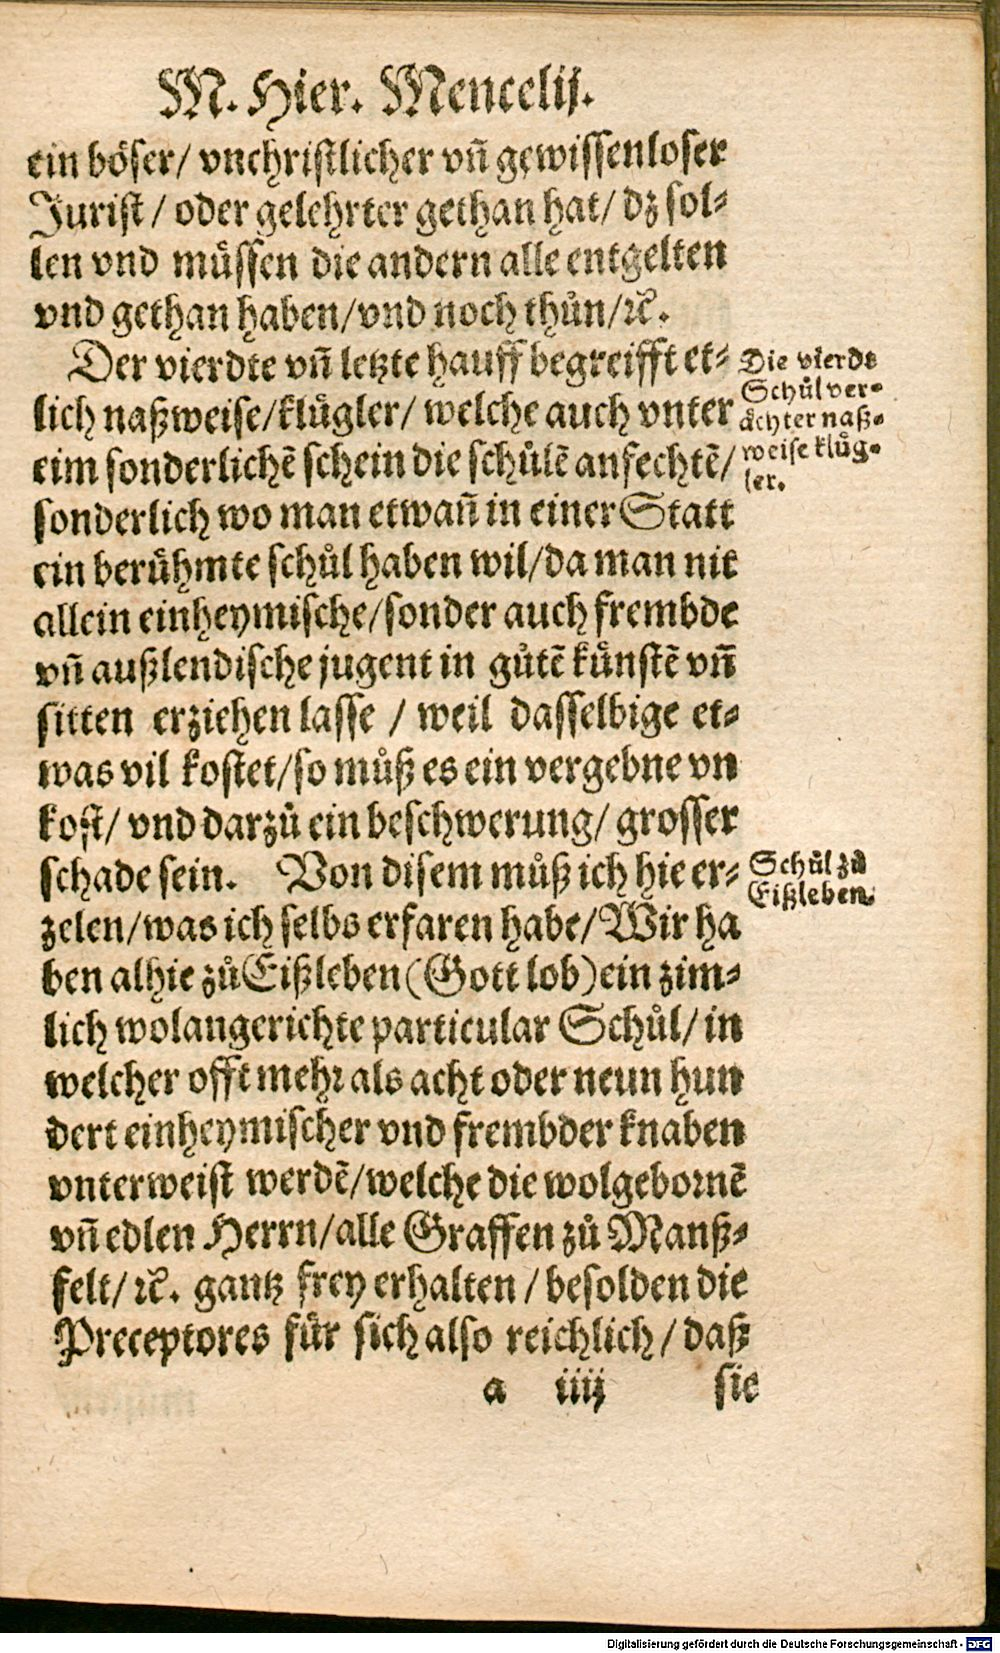 M. Hier. Mencelij.
ein böser/ vnchristlicher vñ gewissenloser
Jurist / oder gelehrter gethan hat/ dz sol-
len vnd müssen die andern alle entgelten
vnd gethan haben/vnd noch thůn/ꝛc̃.
Der vierdte vñ letzte hauff begreifft et-
lich naßweise/klůgler/ welche auch vnter
eim sonderlichẽ schein die schůlẽ anfechtẽ/
sonderlich wo man etwañ in einer Statt
ein berühmte schůl haben wil/da man nit
allein einheymische/sonder auch frembde
vñ außlendische jugent in gůtẽ künstẽ vñ
sitten erziehen lasse / weil dasselbige et-
was vil kostet/so můß es ein vergebne vn
kost/ vnd darzů ein beschwerung/ grosser
schade sein. Von disem můß ich hie er-
zelen/was ich selbs erfaren habe/Wir ha
ben alhie zů Eißleben (Gott lob) ein zim-
lich wolangerichte particular Schůl/ in
welcher offt mehr als acht oder neun hun
dert einheymischer vnd frembder knaben
vnterweist werdẽ/welche die wolgebornẽ
vñ edlen Herrn/alle Graffen zů Manß-
felt/ ꝛc̃. gantz frey erhalten / besolden die
Preceptores für sich also reichlich / daß
a iiij sie
Die vierdt
Schůl ver-
ächter naß-
weise klůg-
ler.
Schůl zů
Eißleben.
Digitalisierung gefördert durch die Deutsche Forschungsgemeinschaft - DFG